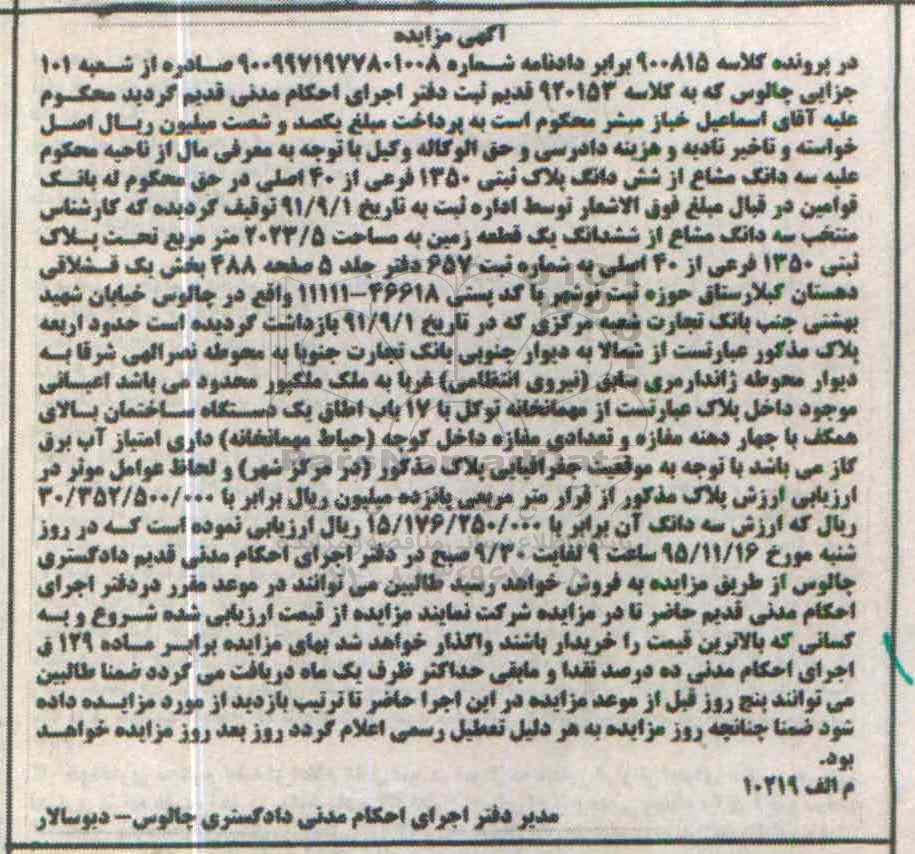 آگهی مزایده
در پرونده کلاسه ۹۰۰۸۱۵ برابر دادنامه شماره ۹۰۰۹۹۷۱۹۷۷۸۰۱۰۰۸ صادره از شعبه ۱۰۱
جزایی چالوس که به کلاسه ۹۲۰۱۵۳ قدیم ثبت دفتر اجرای احکام مدنی قدیم گردید محکوم
علیه آقای اسماعیل خباز مبشر محکوم است به پرداخت مبلغ یکصد و شصت میلیون ریال اصل
خواسته و تاخیر تادیه و هزینه دادرسی و حق الوکاله وکیل با توجه به معرفی مال از ناحیه محکوم
علیه سه دانگ مشاع از شش دانگ پلاک ثبتی ۱۳۵۰ فرعی از ۴۰ اصلی در حق محکوم له بانک
قوامین در قبال مبلغ فوق الاشعار توسط اداره ثبت به تاریخ ۹۱/۹/۱ توقیف گردیده که کارشناس
منتخب سه دانگ مشاع از ششدانگ یک قطعه زمین به مساحت ۲۰۲۳/۵ متر مربع تحت پلاک
ثبتی ۱۳۵۰ فرعی از ۴۰ اصلی به شماره ثبت ۶۵۷ دفتر جلد ۵ صفحه ۴۸۸ بخش یک قشلاقی
دهستان کلارستاق حوزه ثبت نوشهر با کد پستی ۴۶۶۱۸-۱۱۱۱۱ واقع در چالوس خیابان شهید
بهشتی جنب بانک تجارت شعبه مرکزی که در تاریخ ۹۱/۹/۱ بازداشت گردیده است حدود اربعه
پلاک مذکور عبارتست از شمالا به دیوار جنوبی بانک تجارت جنوبا به محوطه نصرالهی شرقا به
دیوار محوطه ژاندارمری سابق (نیروی انتظامی) غربا به ملک ملکپور محدود می باشد اعیانی
موجود داخل پلاک عبارتست از مهمانخانه توکل با ۱۷ باب اطاق یک دستگاه ساختمان بالای
همکف با چهار دهنه مغازه و تعدادی مغازه داخل کوچه (حیاط مهمانخانه) داری امتیاز آب برق
گاز می باشد با توجه به موقعیت جغرافیایی پلاک مذکور (در مرکز شهر) و لحاظ عوامل موثر در
ارزیابی ارزش پلاک مذکور از قرار متر مربعی پانزده میلیون ریال برابر با ۳۰/۳۵۲/۵۰۰/۰۰۰
ریال که ارزش سه دانگ آن برابر با ۱۵/۱۷۶/۲۵۰/۰۰۰ ریال ارزیابی نموده است که در روز
شنبه مورخ ۹۵/۱۱/۱۶ ساعت ۹ لغایت ۹/۳۰ صبح در دفتر اجرای احکام مدنی قدیم دادگستری
چالوس از طریق مزایده به فروش خواهد رسید طالبین می توانند در موعد مقرر دردفتر اجرای
احکام مدنی قدیم حاضر تا در مزایده شرکت نمایند مزایده از قیمت ارزیابی شده شروع و به
کسانی که بالاترین قیمت را خریدار باشند واگذار خواهد شد بهای مزایده برابر ماده ۱۲۹ ق
اجرای احکام مدنی ده درصد نقدا و مابقی حداکثر ظرف یک ماه دریافت می گردد ضمنا طالبین
می توانند پنج روز قبل از موعد مزایده در این اجرا حاضر تا ترتیب بازدید از مورد مزایده داده
شود ضمنا چنانچه روز مزایده به هر دلیل تعطیل رسمی اعلام گردد روز بعد روز مزایده خواهد
بود.
م الف ۱۰۲۱۹
مدیر دفتر اجرای احکام مدنی دادگستری چالوس- دیوسالار